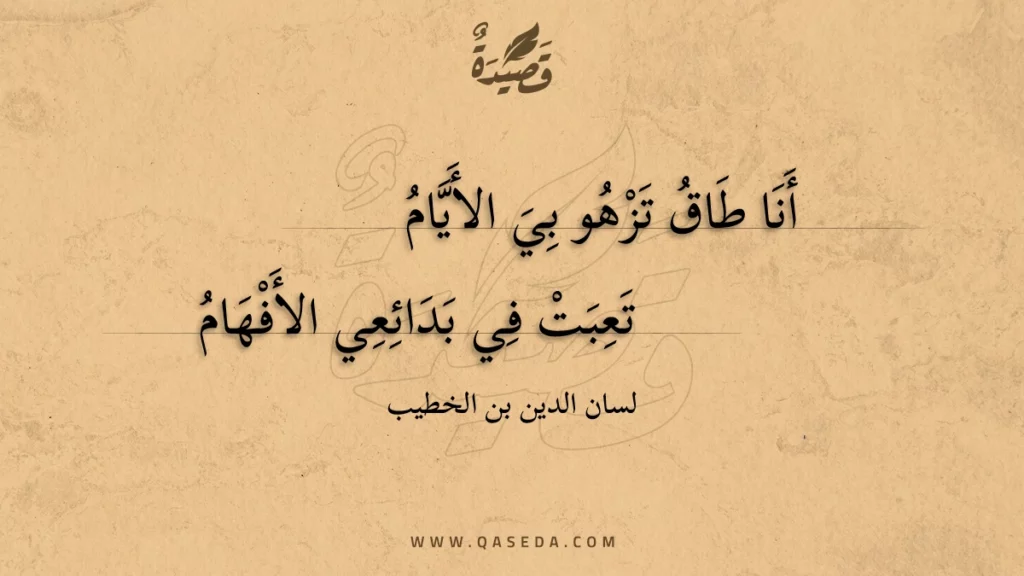 قَصِيْدَةٌ
أَنَا طَاقُ تَزْهُو بِيَ الأَيَّامُ
تَعِبَتْ فِي بَدَائِعِي الأَفْهَامُ
لسان الدين بن الخطيب
WWW.QASEDA.COM